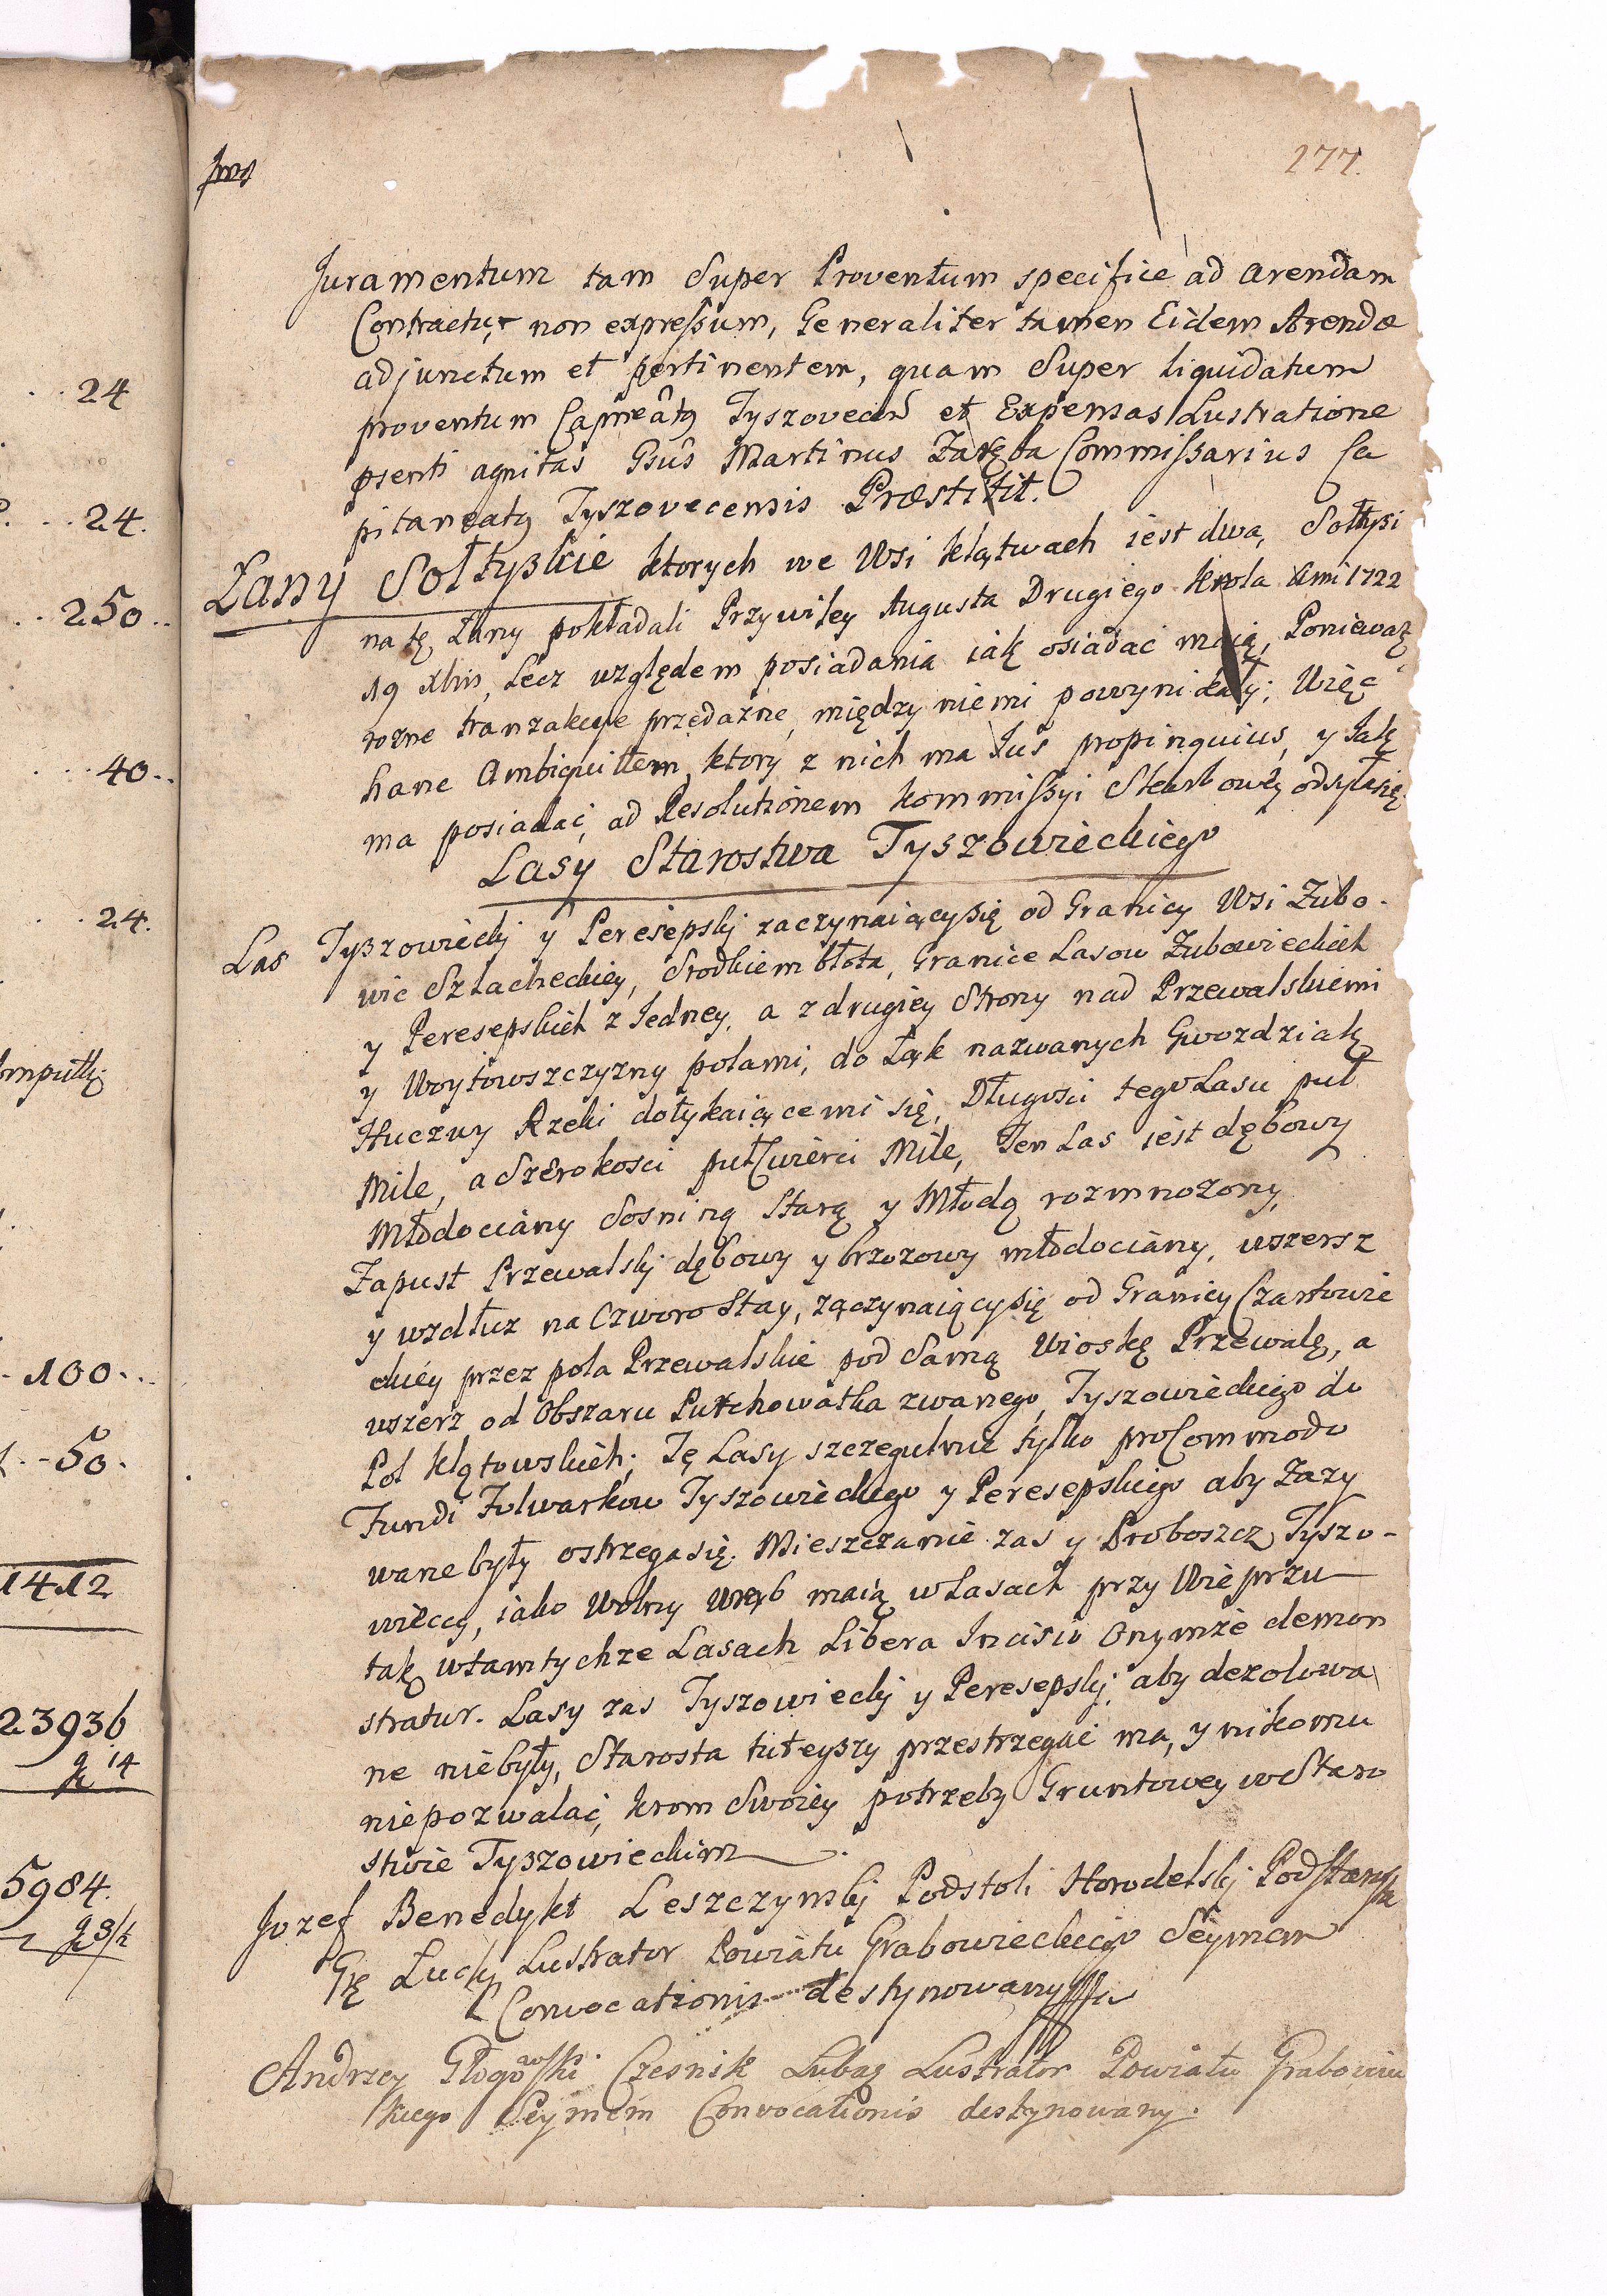 177.
Jus
Juramentum tam Super Proventum specifice ad arendam
Contractus non expressum, Generaliter tamen Eidem Arendæ
adjunctum et pertinentem, quam Super liquidatum
proventum Capneatg Tyszovecen et Expensas Lustratione
psenti agnitas Gsus Martinus Zaręba Commissarius Ca
pitaneatg Tyszovecensis Præstitit.
Łany Sołtyskie ktorych we Wsi Klątwach iest dwa, Sołtysi
na tę Łany pokładali Przywiley Augusta Drugiego Krola Ami 1722
19 Xbris, Lecz względem posiadania iak osiadać maią, Poniewaz
rozne tranzakcye przedazne, między niemi powynikały; Więc
hanc Ambiquittem, ktory z nich ma Jus propinquius, y Jak
ma posiadać, ad Resolutionem Kommissyi Skarbowey odsyła się
Lasy Starostwa Tyszowieckiego
Las Tyszowiecky y Peresepsky zaczynaiący się od Granicy Wsi Zubo-
wic Szlacheckiey, Srodkiem błota, Granice Lasow Zubowieckich
y Peresepskich z Jedney, a z drugiey Strony nad Przewalskiemi
y Woytowszczyzny polami, do Łąk nazwanych Gwozdziak
Huczwy Rzeki dotykaiącemi się, Długosci tego Lasu puł
Mile, a Szerokosci puł Cwierci Mile, Ten Las iest dębowy
Młodociany Sosniną Starą y Młodą rozmnozony,
Zapust Przewalsky dębowy y brzozowy młodociany, wszersz
y wzdłuz na Czworo Stay, zączynaiący się od Granicy Czartowie
ckiey przez pola Przewalskie pod Samą Wioskę Przewalę, a
wszerz od Obszaru Putchowatka zwanego, Tyszowieckiego do
Pol Klątowskich; Tę Lasy szczegulnie tylko pro Commodo
Fundi Folwarkow Tyszowieckiego y Peresepskiego aby Zazy
wane były ostrzega się. Mieszczanie zas y Proboszcz Tyszo-
wieccy, iako Wolny Wręb maią w Lasach przy Wieprzu
tak w tamtychze Lasach Libera Incisio Onymze demon
stratur. Lasy zas Tyszowiecky y Peresepsky, aby dezolowa
ne niebyły, Starosta tuteyszy przestrzegać ma, y nikomu
niepozwalać, krom Swoiey potrzeby Gruntowey w Staro
stwie Tyszowieckim
Jozef Benedykt Leszczynsky Podstoli Horodelsky
Lustrator Powiatu Grabowieckiego Seymem
Convocationis destynowany
Andrzey Głogowski Czesnik Lubaz Lustrator Powiatu Grabowie
kiego Seymem Convocationis destynowany.
24
24.
250
40
24.
100
50.
1412
23936
14
5984.